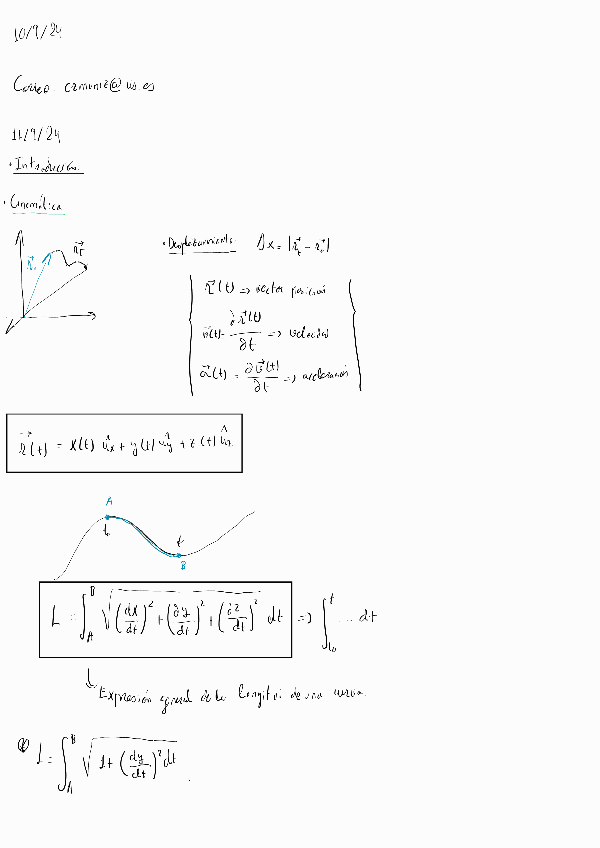 10/9/24
Correo camuniz@us.es
11/9/24
· Introducción.
· Cinemática
r⃗₀ r⃗t
· Desplazamiento: Δx = |r⃗t - r⃗₀|
r⃗(t) => vector posición
v⃗(t) = ∂r⃗(t)/∂t => velocidad
a⃗(t) = ∂v⃗(t)/∂t => aceleración
r⃗(t) = x(t) ûx + y(t) ûy + z(t) ûz
A
t₀ t
B
L = ∫_A^B √((dx/dt)² + (∂y/dt)² + (∂z/dt)²) dt => ∫_{t₀}^t ... dt
Expresión general de la longitud de una curva.
L = ∫_A^B √(1 + (dy/dt)² dt